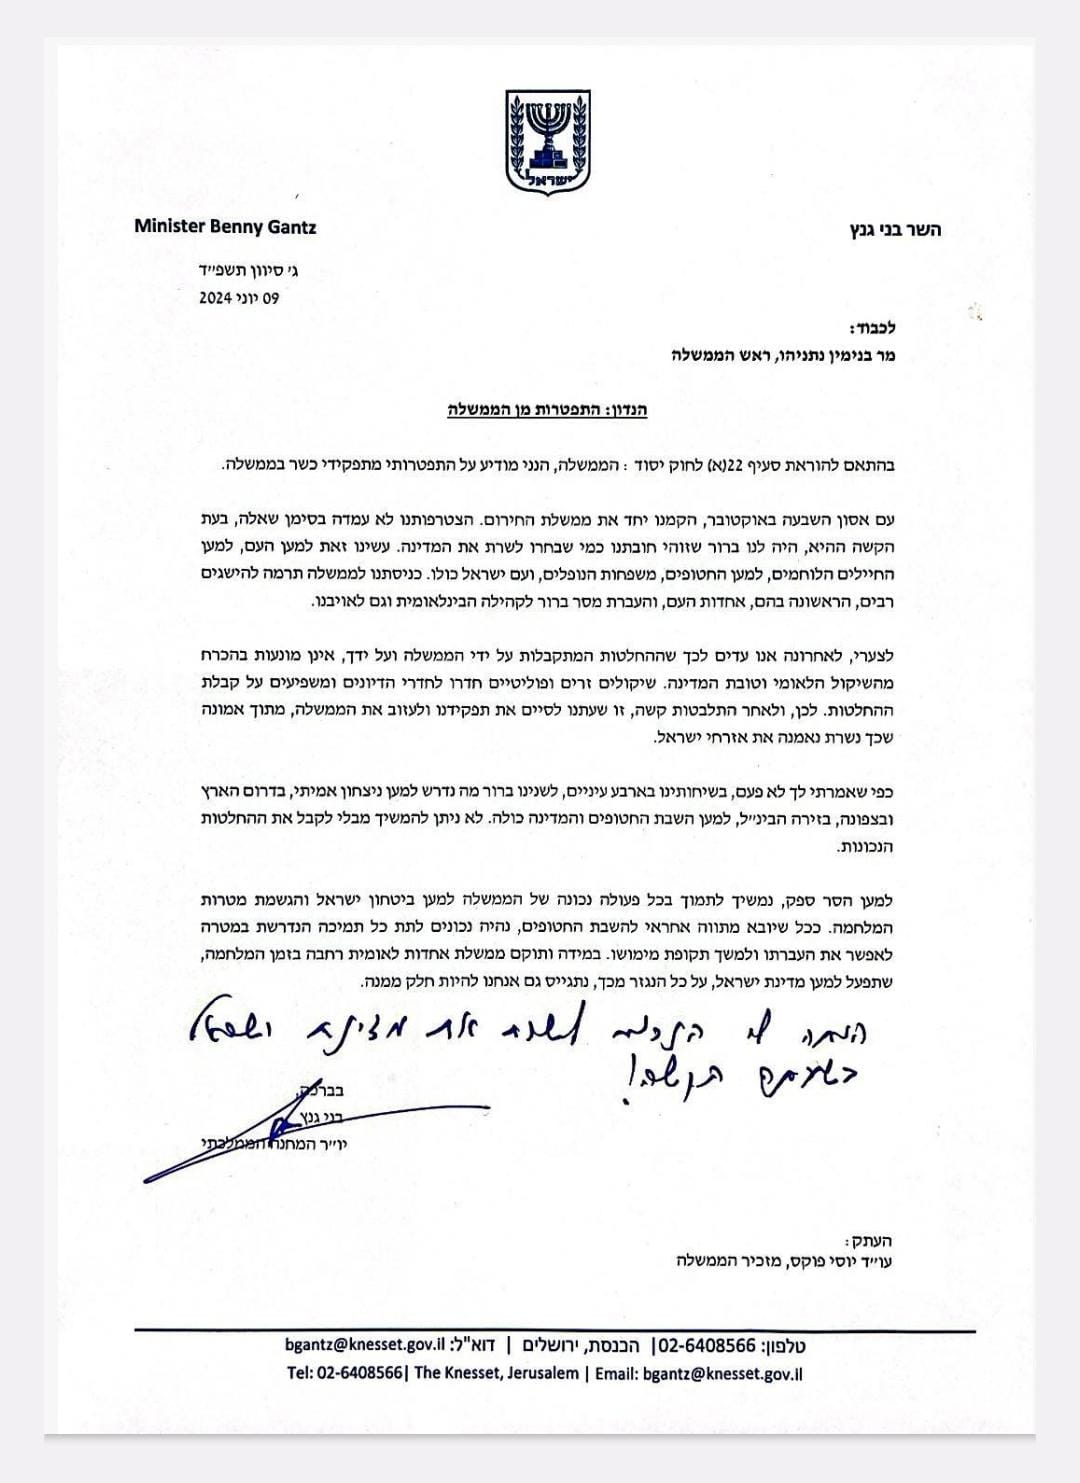 ישראל
Minister Benny Gantz
השר בני גנץ
ג׳ סיוון תשפ״ד
09 יוני 2024
לכבוד:
מר בנימין נתניהו, ראש הממשלה
הנדון: התפטרות מן הממשלה
בהתאם להוראת סעיף 22(א) לחוק יסוד : הממשלה, הנני מודיע על התפטרותי מתפקידי כשר בממשלה.
עם אסון השבעה באוקטובר, הקמנו יחד את ממשלת החירום. הצטרפותנו לא עמדה בסימן שאלה, בעת
הקשה ההיא, היה לנו ברור שזוהי חובתנו כמי שבחרו לשרת את המדינה. עשינו זאת למען העם, למען
החיילים הלוחמים, למען החטופים, משפחות הנופלים, ועם ישראל כולו. כניסתנו לממשלה תרמה להישגים
רבים, הראשונה בהם, אחדות העם, והעברת מסר ברור לקהילה הבינלאומית וגם לאויבנו.
לצערי, לאחרונה אנו עדים לכך שההחלטות המתקבלות על ידי הממשלה ועל ידך, אינן מונעות בהכרח
מהשיקול הלאומי וטובת המדינה. שיקולים זרים ופוליטיים חדרו לחדרי הדיונים ומשפיעים על קבלת
ההחלטות. לכן, ולאחר התלבטות קשה, זו שעתנו לסיים את תפקידנו ולעזוב את הממשלה, מתוך אמונה
שכך נשרת נאמנה את אזרחי ישראל.
כפי שאמרתי לך לא פעם, בשיחותינו בארבע עיניים, לשנינו ברור מה נדרש למען ניצחון אמיתי, בדרום הארץ
ובצפונה, בזירה הבינ״ל, למען השבת החטופים והמדינה כולה. לא ניתן להמשיך מבלי לקבל את ההחלטות
הנכונות.
למען הסר ספק, נמשיך לתמוך בכל פעולה נכונה של הממשלה למען ביטחון ישראל והגשמת מטרות
המלחמה. ככל שיובא מתווה אחראי להשבת החטופים, נהיה נכונים לתת כל תמיכה הנדרשת במטרה
לאפשר את העברתו ולמשך תקופת מימושו. במידה ותוקם ממשלת אחדות לאומית רחבה בזמן המלחמה,
שתפעל למען מדינת ישראל, על כל הנגזר מכך, נתגייס גם אנחנו להיות חלק ממנה.
הייתה לי הזכות לשרת את מדינת ישראל
בשעתה הקשה!
בברכה,
בני גנץ
יו״ר המחנה הממלכתי
העתק:
עו״ד יוסי פוקס, מזכיר הממשלה
טלפון: 02-6408566| הכנסת, ירושלים | דוא"ל: bgantz@knesset.gov.il
Tel: 02-6408566| The Knesset, Jerusalem | Email: bgantz@knesset.gov.il